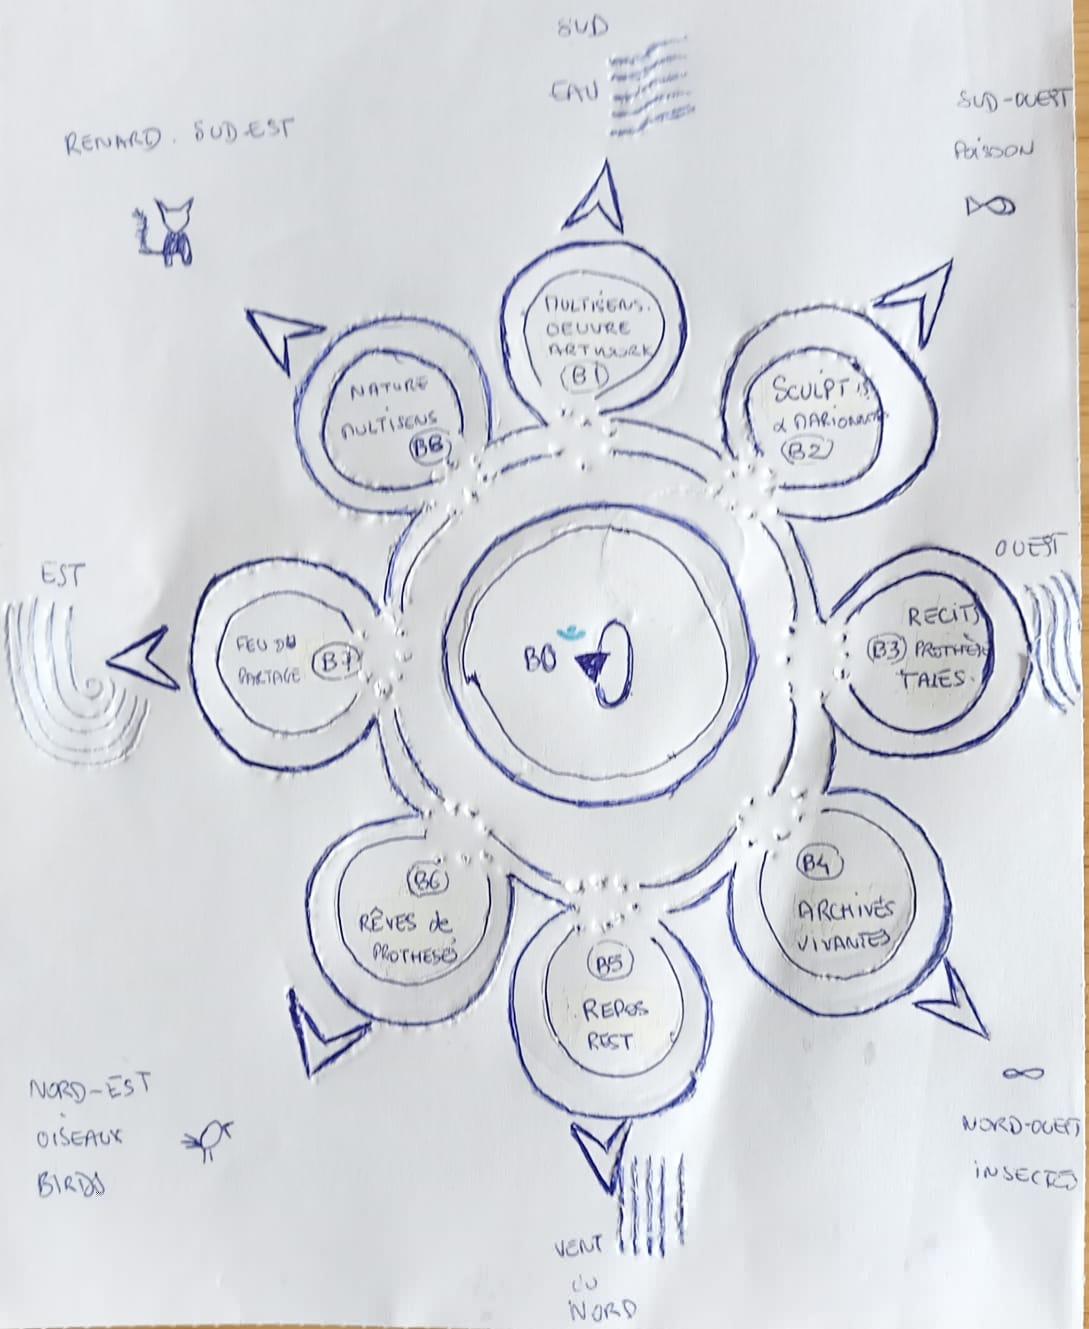 SUD
EAU
SUD-OUEST
POISSON
RENARD. SUD EST
MULTISENS.
OEUVRE
ARTWORK
B1
NATURE
MULTISENS
B8
SCULPT
B2
EST
OUEST
FEU DU
PARTAGE
B7
B0
RECITS
B3
TALES.
B6
RÊVES de
PROTHESES
B4
ARCHIVES
VIVANTES
B5
REPOS
REST
NORD-EST
OISEAUX
BIRDS
NORD-OUEST
INSECTES
VENT
DU
NORD